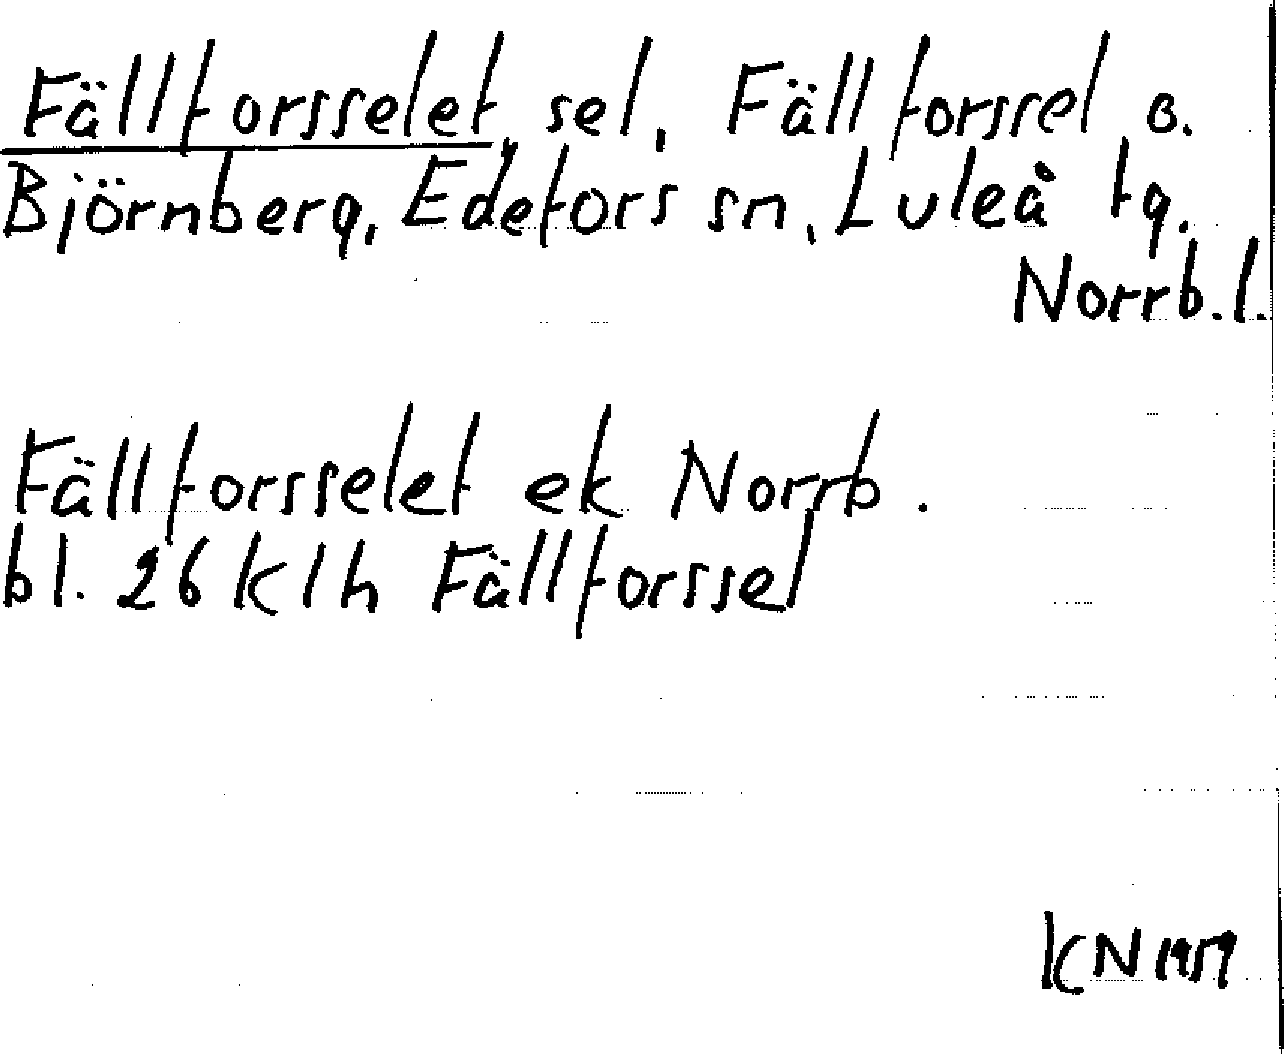 Fällforsselet, sel, Fällforssel o.
Björnberg, Edefors sn, Luleå tg.
Norrb. l.
Fällforsselet ek Norrb.
bl. 26 K l h Fällforssel
KN 1959